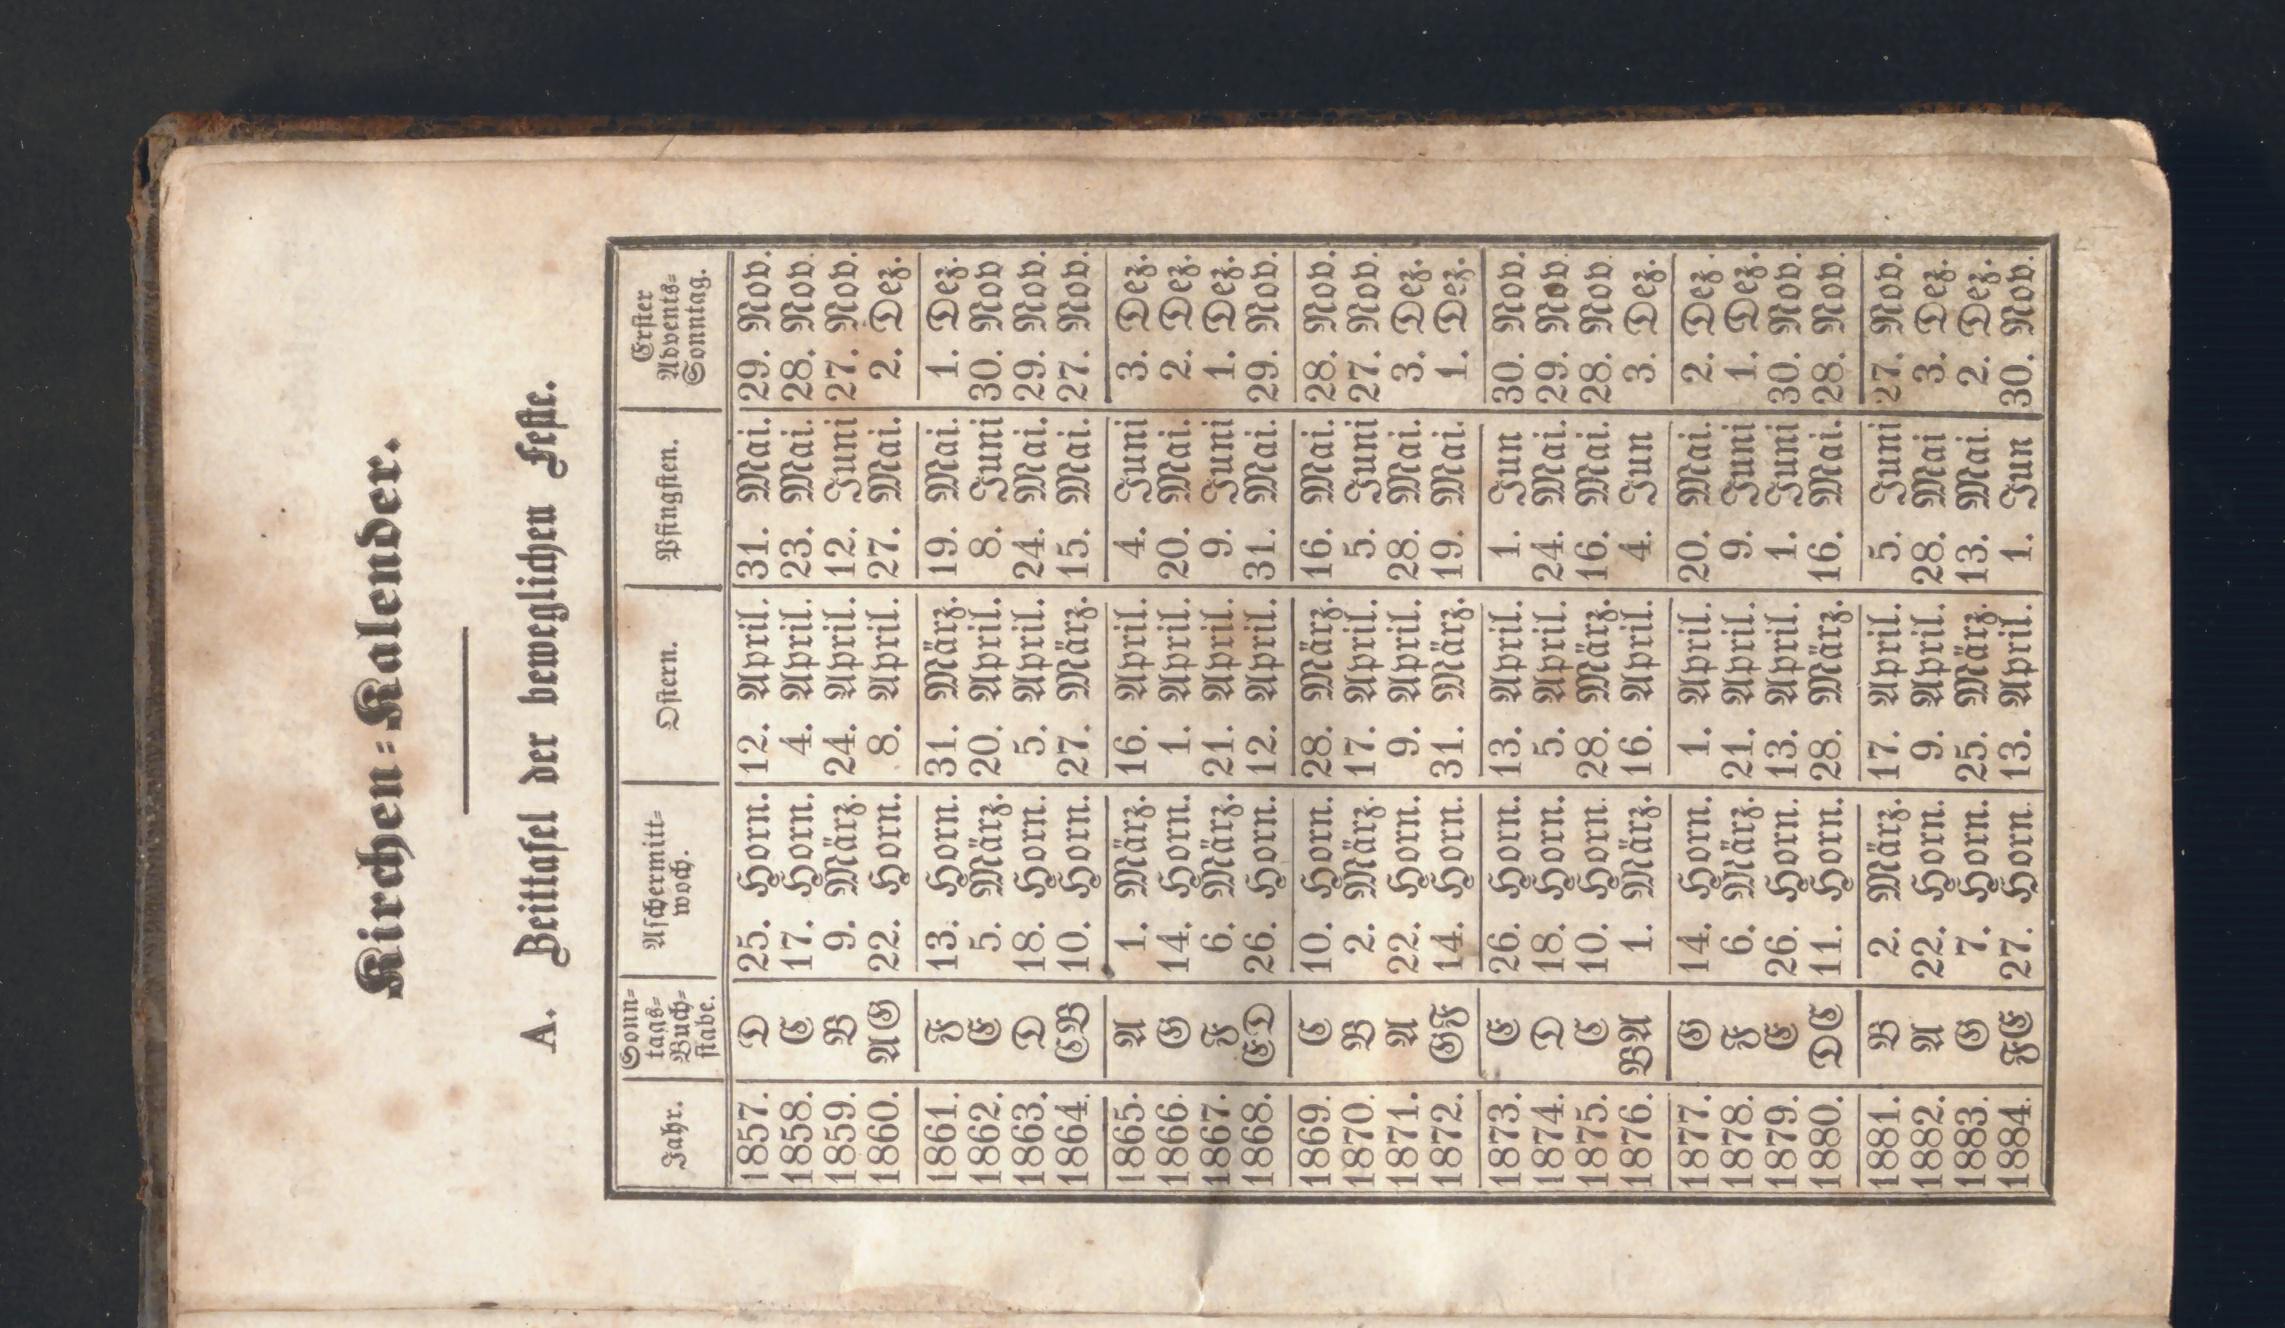 Kirchen-Kalender.
A. Zeittafel der beweglichen Feste.
Jahr. Sonn-tags-Buch-stabe. Aschermitt-woch. Ostern. Pfingsten. Erster Advents-Sonntag.
1857. D 25. Horn. 12. April. 31. Mai. 29. Nov.
1858. C 17. Horn. 4. April. 23. Mai. 28. Nov.
1859. B 9. März. 24. April. 12. Juni 27. Nov.
1860. AG 22. Horn. 8. April. 27. Mai. 2. Dez.
1861. F 13. Horn. 31. März. 19. Mai. 1. Dez.
1862. E 5. März. 20. April. 8. Juni 30. Nov
1863. D 18. Horn. 5. April. 24. Mai. 29. Nov.
1864. CB 10. Horn. 27. März. 15. Mai. 27. Nov.
1865. A 1. März. 16. April. 4. Juni 3. Dez.
1866. G 14. Horn. 1. April. 20. Mai. 2. Dez.
1867. F 6. März. 21. April. 9. Juni 1. Dez.
1868. ED 26. Horn. 12. April. 31. Mai. 29. Nov.
1869. C 10. Horn. 28. März. 16. Mai. 28. Nov.
1870. B 2. März. 17. April. 5. Juni 27. Nov.
1871. A 22. Horn. 9. April. 28. Mai. 3. Dez.
1872. GF 14. Horn. 31. März. 19. Mai. 1. Dez.
1873. E 26. Horn. 13. April. 1. Jun 30. Nov.
1874. D 18. Horn. 5. April. 24. Mai. 29. Nov.
1875. C 10. Horn. 28. März. 16. Mai. 28. Nov
1876. BA 1. März. 16. April. 4. Jun 3. Dez.
1877. G 14. Horn. 1. April. 20. Mai. 2. Dez.
1878. F 6. März. 21. April. 9. Juni 1. Dez.
1879. E 26. Horn. 13. April. 1. Juni 30. Nov.
1880. DC 11. Horn. 28. März. 16. Mai. 28. Nov.
1881. B 2. März. 17. April. 5. Juni 27. Nov.
1882. A 22. Horn. 9. April. 28. Mai 3. Dez.
1883. G 7. Horn. 25. März. 13. Mai. 2. Dez.
1884. FE 27. Horn. 13. April. 1. Jun 30. Nov.